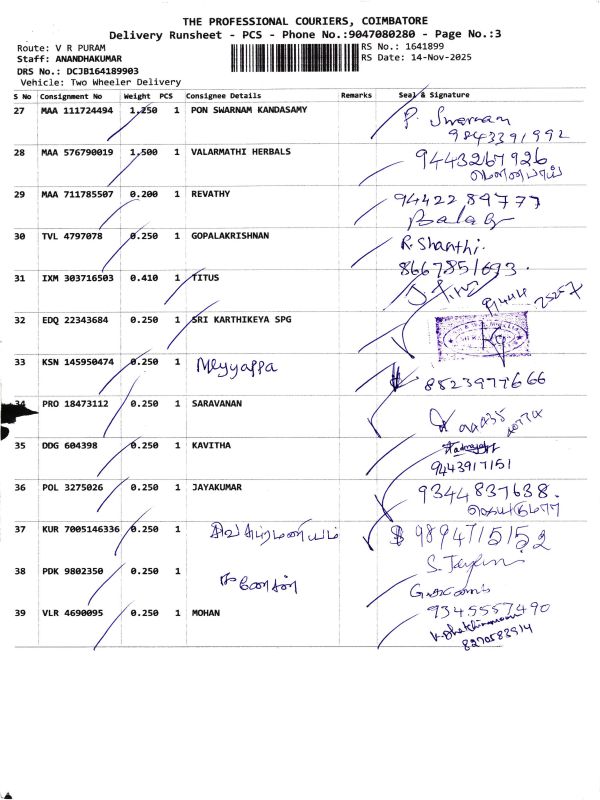 THE PROFESSIONAL COURIERS, COIMBATORE
Delivery Runsheet - PCS - Phone No.:9047080280 - Page No.:3
Route: V R PURAM
Staff: ANANDHAKUMAR
DRS No.: DCJB164189903
Vehicle: Two Wheeler Delivery
RS No.: 1641899
RS Date: 14-Nov-2025
S No Consignment No Weight PCS Consignee Details Remarks Seal & Signature
27 MAA 111724494 1.250 1 PON SWARNAM KANDASAMY P. Swarnam
9843391992
28 MAA 576790019 1.500 1 VALARMATHI HERBALS 9443267926
29 MAA 711785507 0.200 1 REVATHY 9442289777
Balaji
30 TVL 4797078 0.250 1 GOPALAKRISHNAN R. Shanthi.
8667851693.
31 IXM 303716503 0.410 1 TITUS
32 EDQ 22343684 0.250 1 SRI KARTHIKEYA SPG
33 KSN 145950474 0.250 1 Meyyappa
8523977666
34 PRO 18473112 0.250 1 SARAVANAN
35 DDG 604398 0.250 1 KAVITHA
9443917151
36 POL 3275026 0.250 1 JAYAKUMAR 9344837638.
37 KUR 7005146336 0.250 1 சிவசுப்ரமணியம் 9894715152
38 PDK 9802350 0.250 1 கணேசன்
39 VLR 4690095 0.250 1 MOHAN 9345557490
8270583914